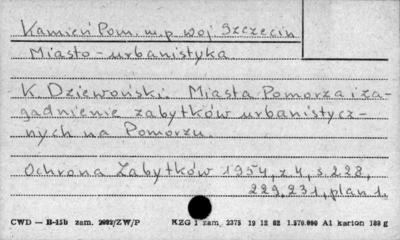 Kamień Pom. m.p. woj Szczecin
Miasto - urbanistyka
K Dziewoński: Miasta Pomorza i za-
gadnienie zabytków urbanistycz-
nych na Pomorzu.
Ochrona Zabytków 1954, z 4, s 228,
229, 231, plan 1.
CWD — B-15b zam. 2092/ZW/P KZG 1 zam. 2375 19 12 82 1.570.000 A1 karton 180 g